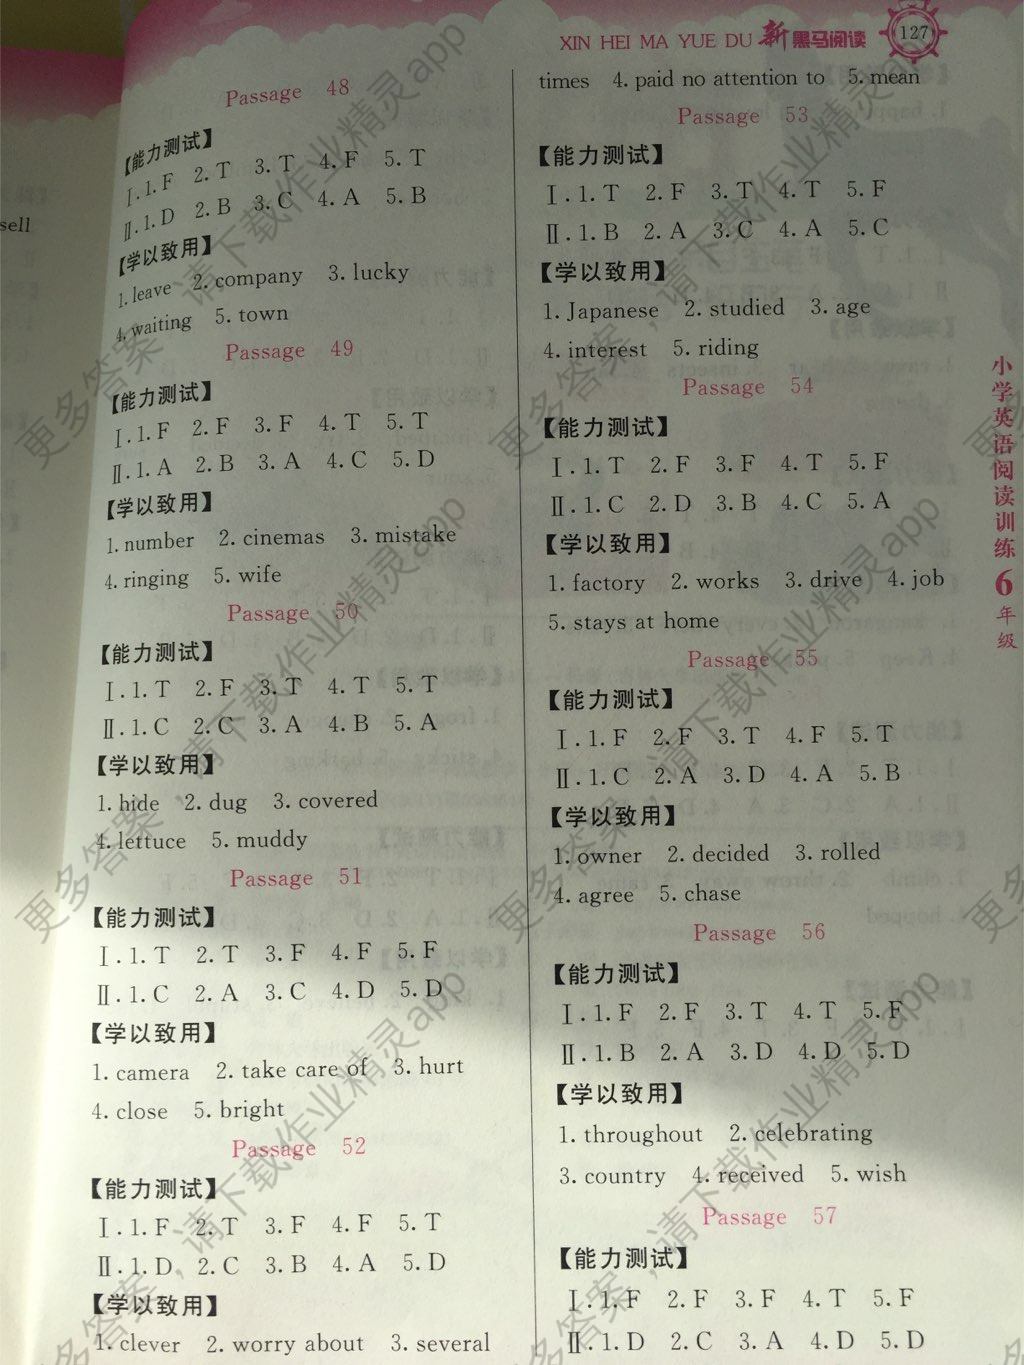 XIN HEI MA YUE DU 新黑马阅读 127
sell
Passage 48
【能力测试】
Ⅰ.1.F 2.T 3.T 4.F 5.T
Ⅱ.1.D 2.B 3.C 4.A 5.B
【学以致用】
1.leave 2.company 3.lucky
4.waiting 5.town
Passage 49
【能力测试】
Ⅰ.1.F 2.F 3.F 4.T 5.T
Ⅱ.1.A 2.B 3.A 4.C 5.D
【学以致用】
1.number 2.cinemas 3.mistake
4.ringing 5.wife
Passage 50
【能力测试】
Ⅰ.1.T 2.F 3.T 4.T 5.T
Ⅱ.1.C 2.C 3.A 4.B 5.A
【学以致用】
1.hide 2.dug 3.covered
4.lettuce 5.muddy
Passage 51
【能力测试】
Ⅰ.1.T 2.T 3.F 4.F 5.F
Ⅱ.1.C 2.A 3.C 4.D 5.D
【学以致用】
1.camera 2.take care of 3.hurt
4.close 5.bright
Passage 52
【能力测试】
Ⅰ.1.F 2.T 3.F 4.F 5.T
Ⅱ.1.D 2.C 3.B 4.A 5.D
【学以致用】
1.clever 2.worry about 3.several
times 4.paid no attention to 5.mean
Passage 53
【能力测试】
Ⅰ.1.T 2.F 3.T 4.T 5.F
Ⅱ.1.B 2.A 3.C 4.A 5.C
【学以致用】
1.Japanese 2.studied 3.age
4.interest 5.riding
Passage 54
【能力测试】
Ⅰ.1.T 2.F 3.F 4.T 5.F
Ⅱ.1.C 2.D 3.B 4.C 5.A
【学以致用】
1.factory 2.works 3.drive 4.job
5.stays at home
Passage 55
【能力测试】
Ⅰ.1.F 2.F 3.T 4.F 5.T
Ⅱ.1.C 2.A 3.D 4.A 5.B
【学以致用】
1.owner 2.decided 3.rolled
4.agree 5.chase
Passage 56
【能力测试】
Ⅰ.1.F 2.F 3.T 4.T 5.F
Ⅱ.1.B 2.A 3.D 4.D 5.D
【学以致用】
1.throughout 2.celebrating
3.country 4.received 5.wish
Passage 57
【能力测试】
Ⅰ.1.F 2.F 3.F 4.T 5.F
Ⅱ.1.D 2.C 3.A 4.D 5.D
小学英语阅读训练6年级
更多答案，请下载作业精灵app